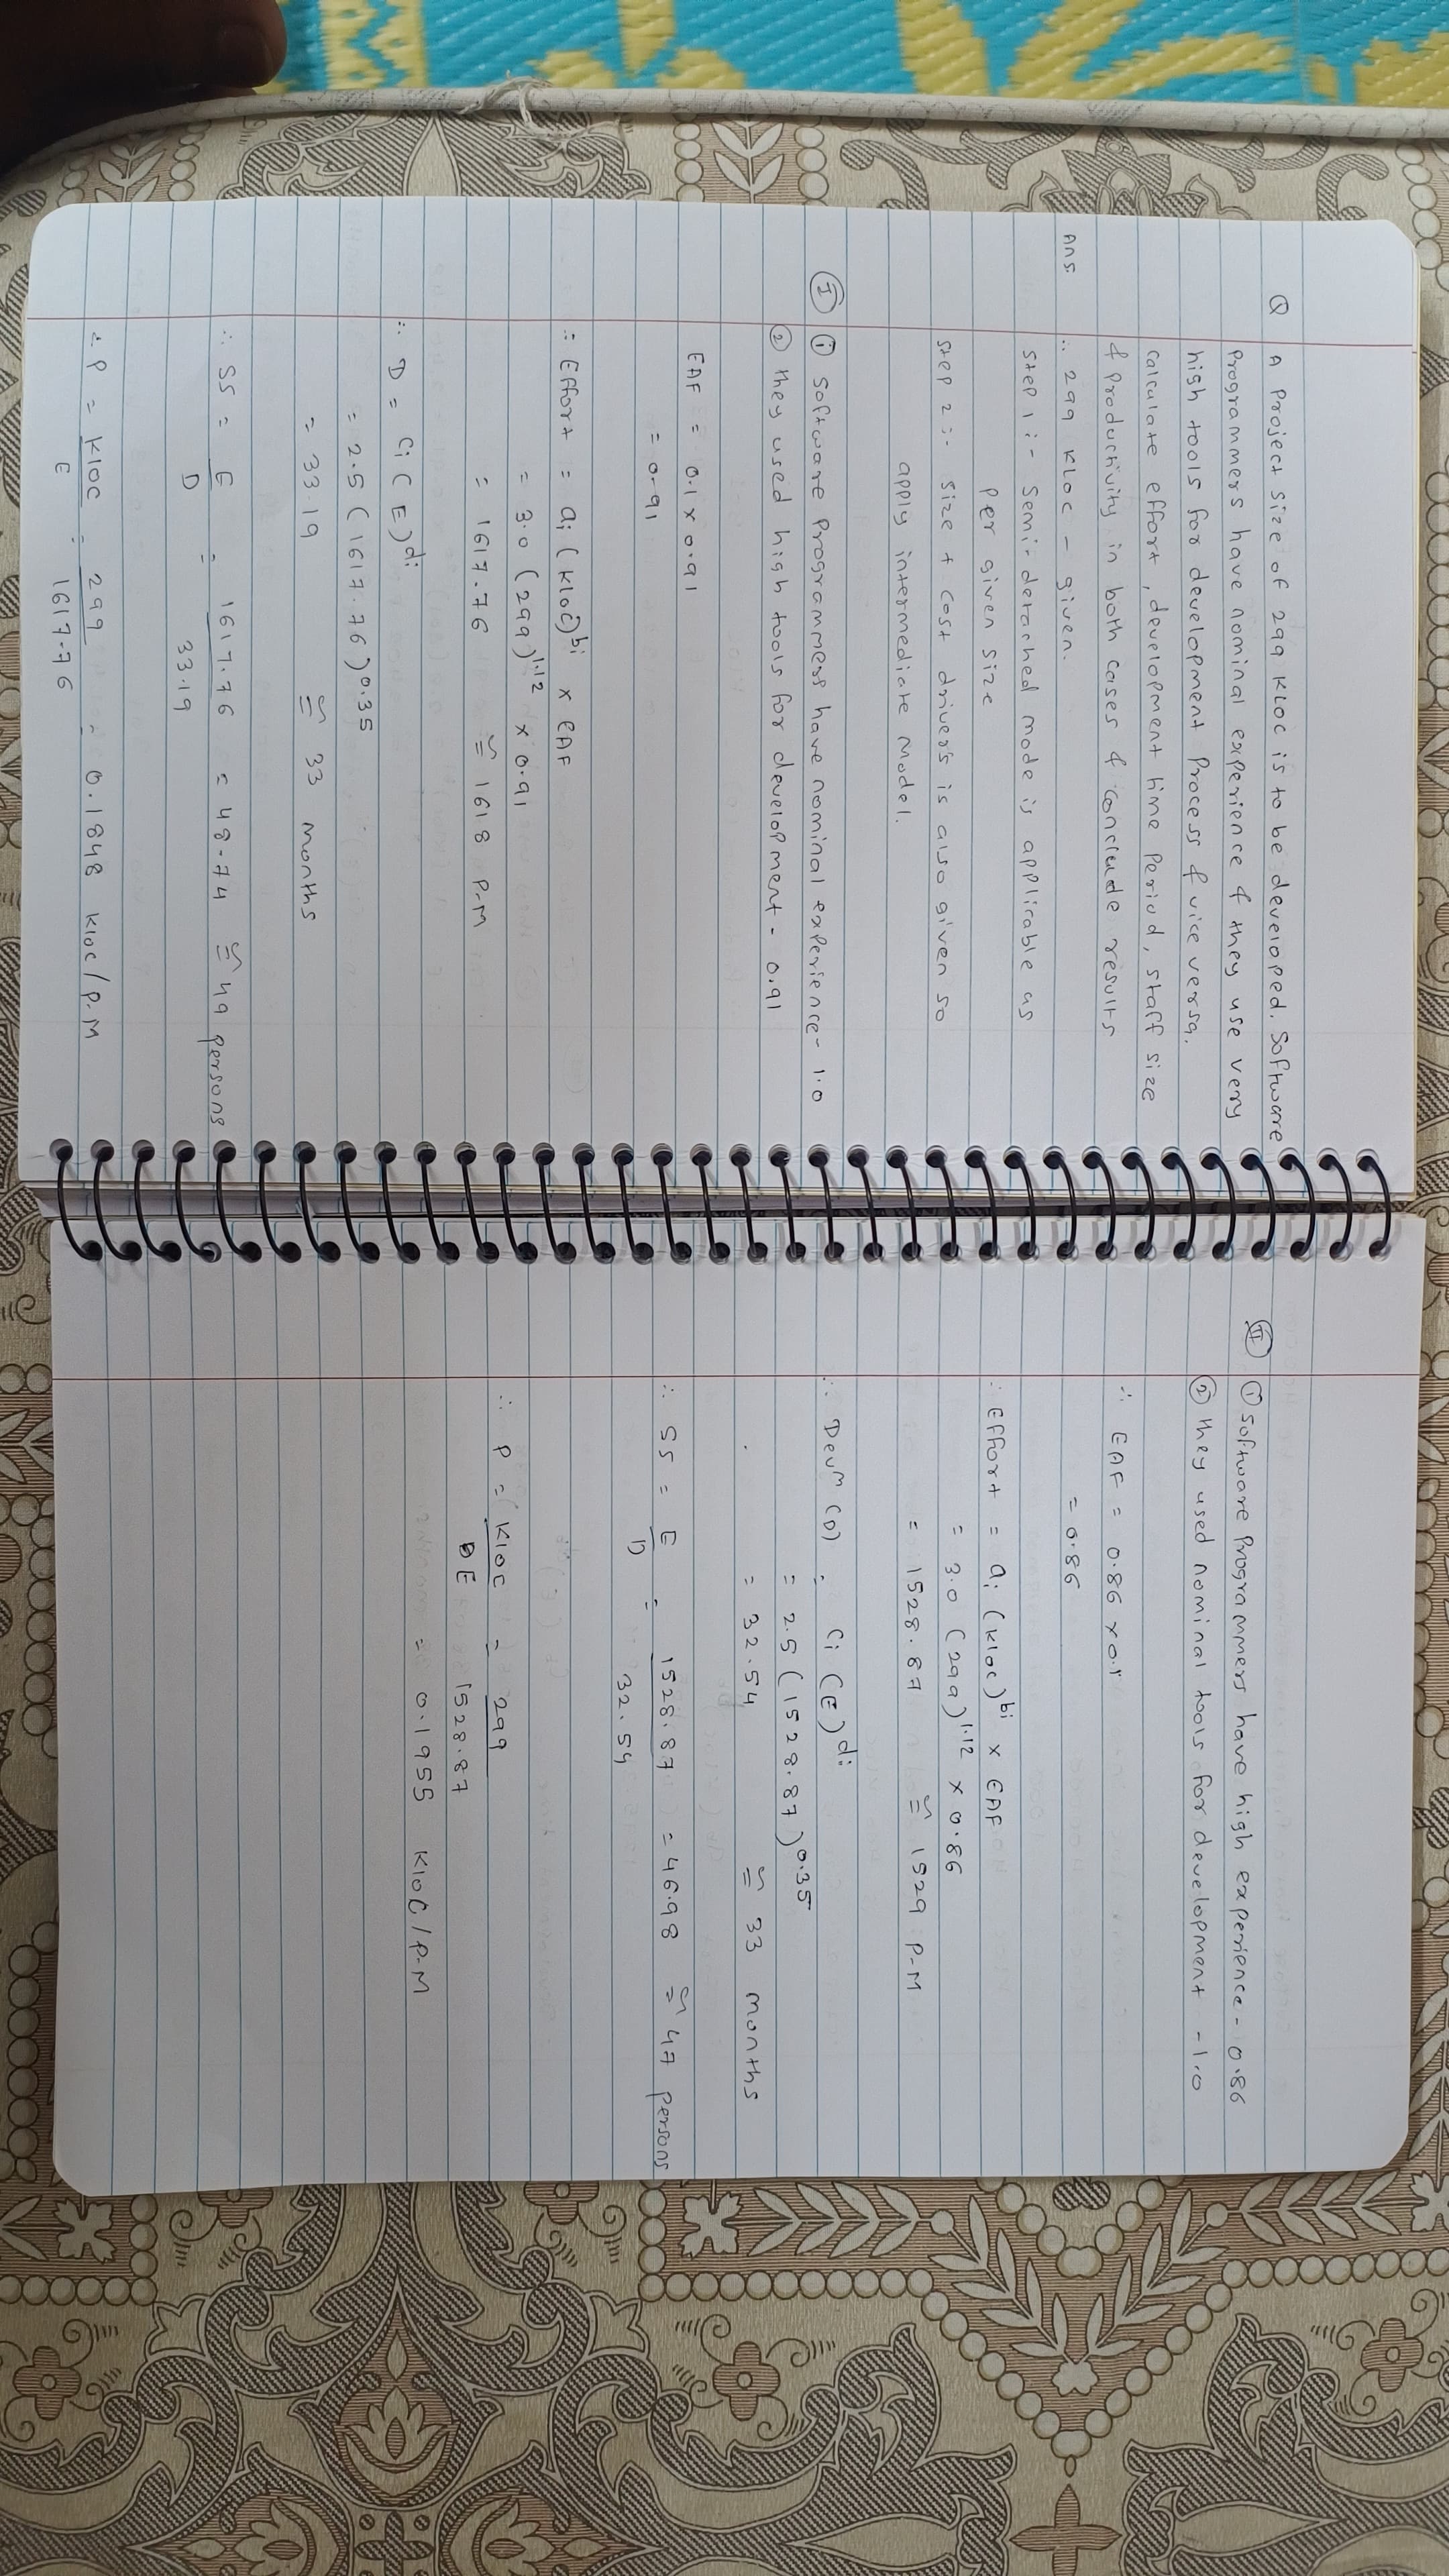 Q A project size of 299 KLOC is to be developed. Software
programmers have nominal experience & they use very
high tools for development process & vice versa.
Calculate effort, development time period, staff size
& productivity in both cases & conclude results
Ans ∴ 299 KLOC - given.
Step 1 :- Semi-detached mode is applicable as
per given size
Step 2 :- Size + cost drivers is also given so
apply intermediate model.
I ① Software programmers have nominal experience - 1.0
② they used high tools for development - 0.91
EAF = 0.1 x 0.91
= 0.91
∴ Effort = ai (KLOC)^bi x EAF
= 3.0 (299)^1.12 x 0.91
= 1617.76 ≅ 1618 P-M
∴ D = Ci (E)^di
= 2.5 (1617.76)^0.35
= 33.19 ≅ 33 months
∴ SS = E/D = 1617.76/33.19 = 48.74 ≅ 49 persons
∴ P = KLOC/E = 299/1617.76 = 0.1848 KLOC/P.M
II ① Software programmers have high experience - 0.86
② they used nominal tools for development - 1.0
∴ EAF = 0.86 x 0.1
= 0.86
∴ Effort = ai (KLOC)^bi x EAF
= 3.0 (299)^1.12 x 0.86
= 1528.87 ≅ 1529 P-M
∴ Devm (D) = Ci (E)^di
= 2.5 (1528.87)^0.35
= 32.54 ≅ 33 months
∴ SS = E/D = 1528.87/32.54 = 46.98 ≅ 47 persons
∴ P = KLOC/E = 299/1528.87
= 0.1955 KLOC/P-M